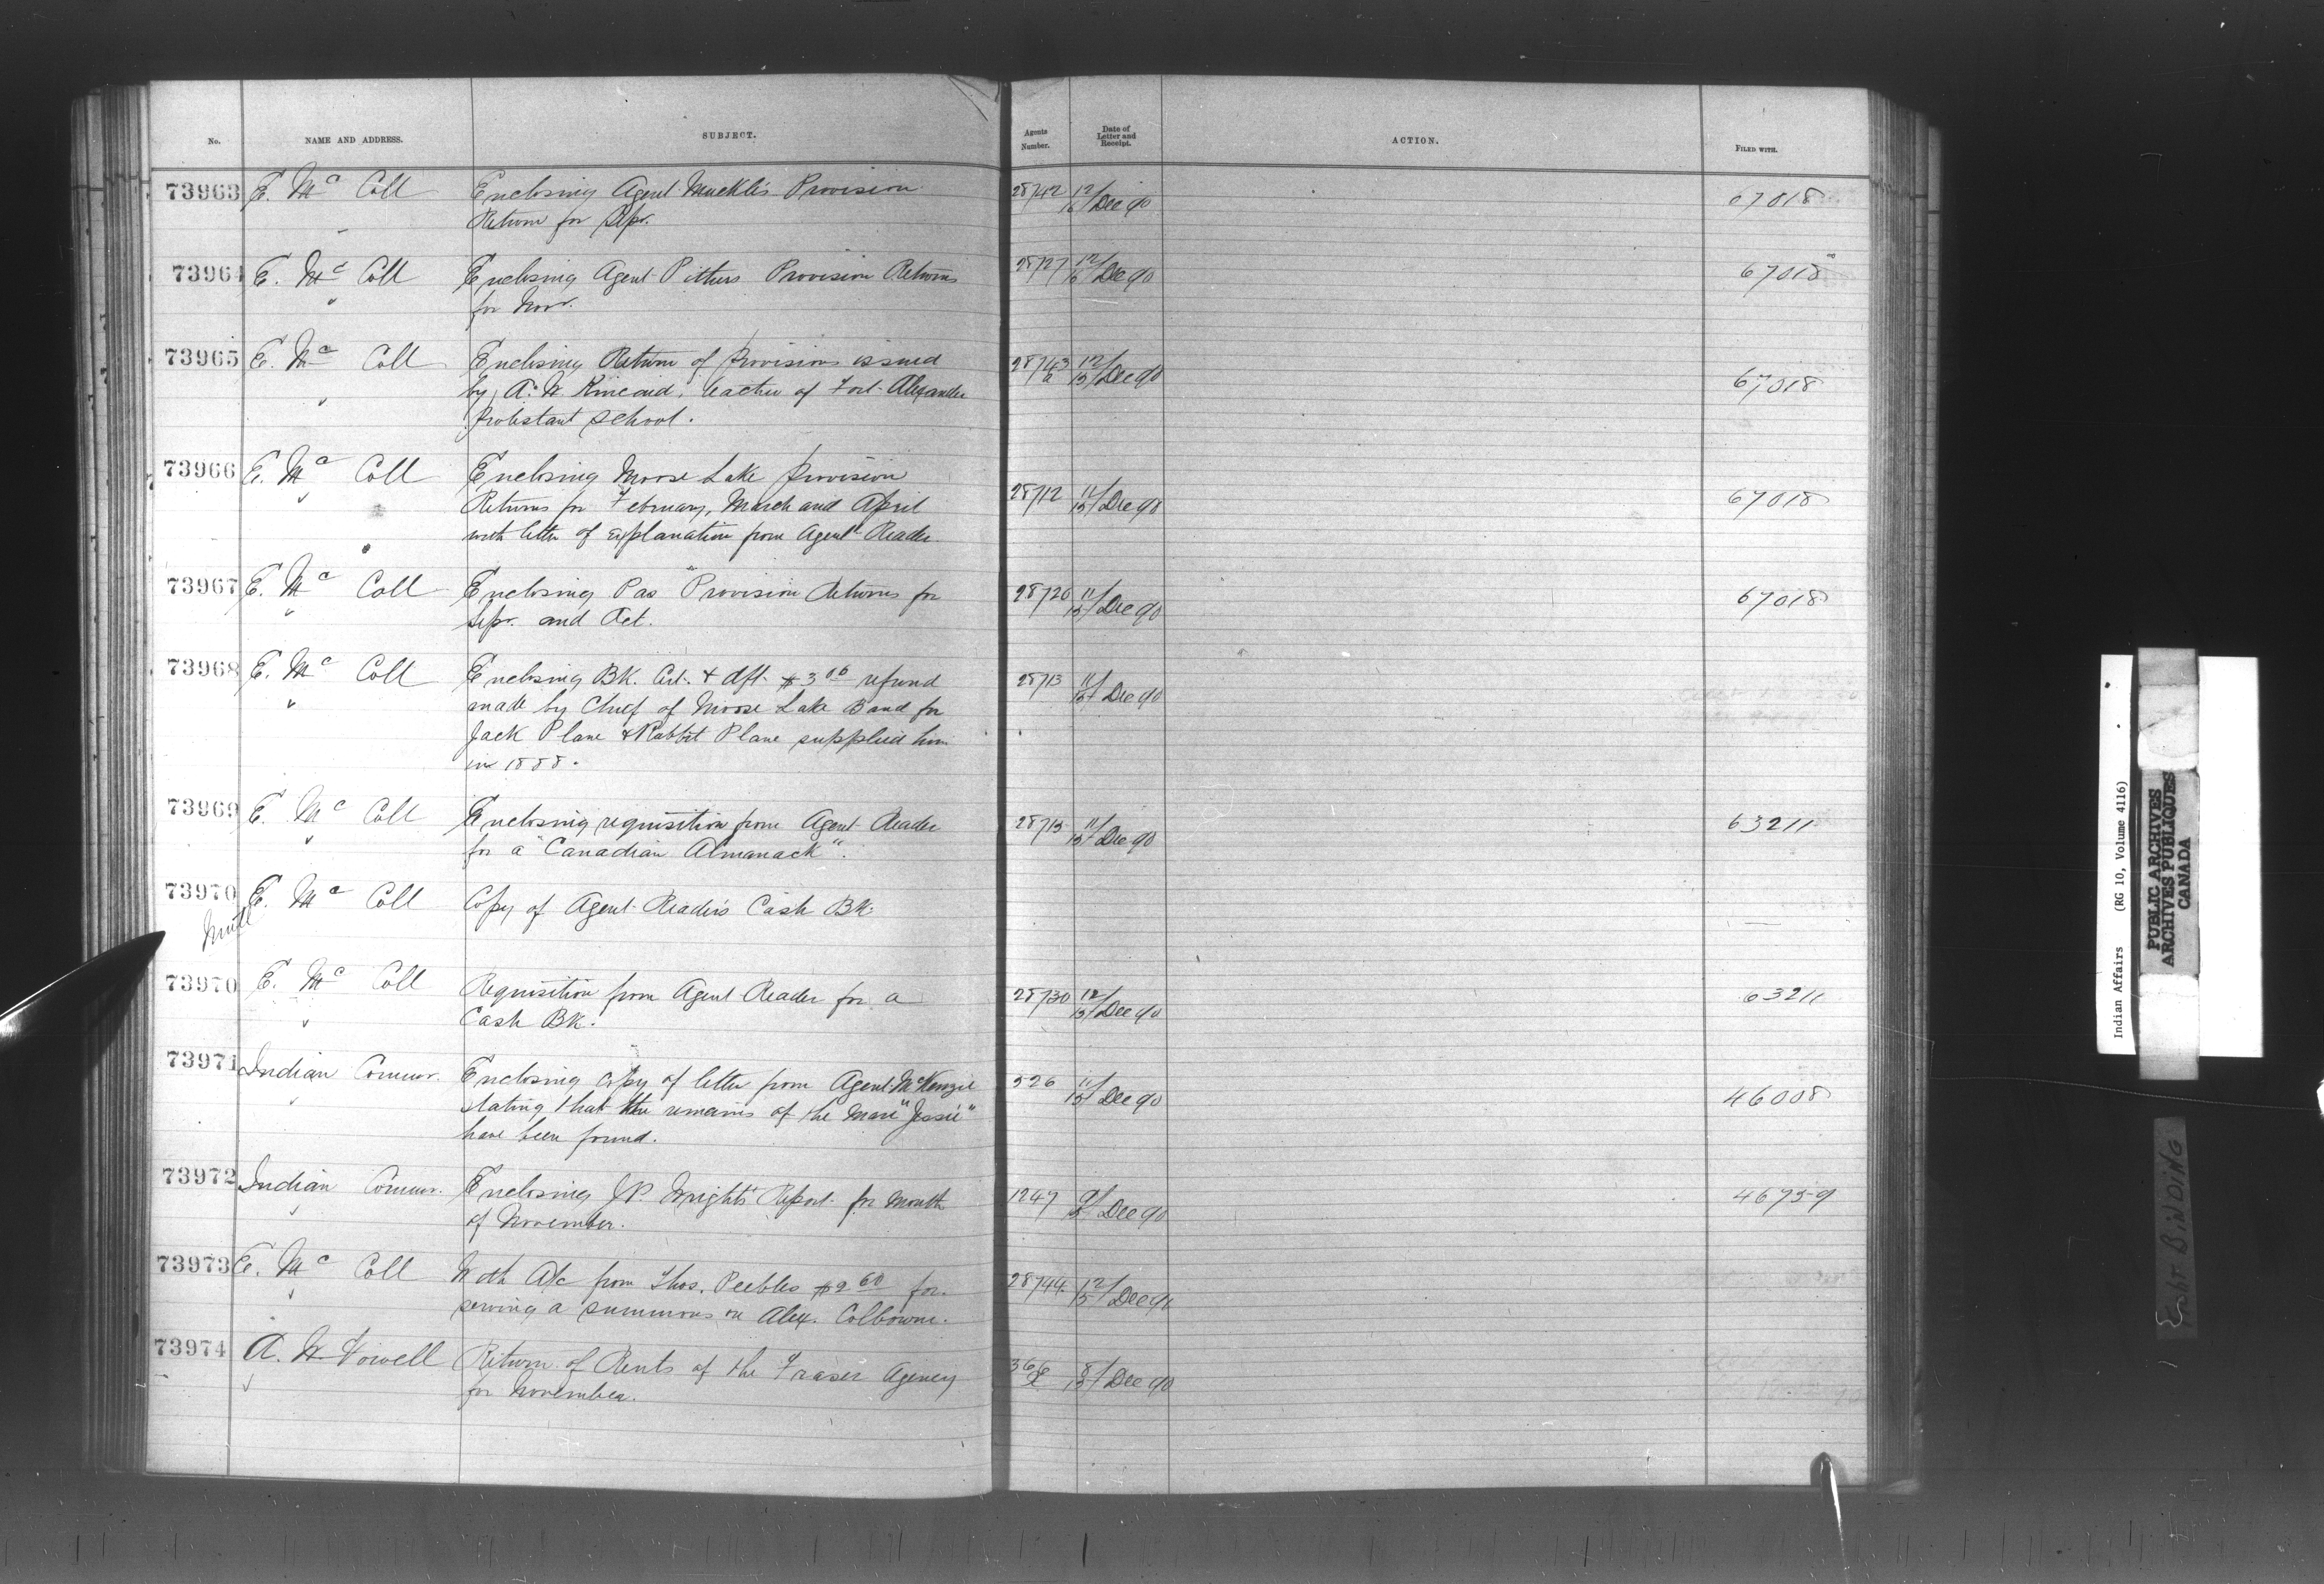 No. NAME AND ADDRESS. SUBJECT. Agents Number. Date of Letter and Receipt. ACTION. FILED WITH.
73963 E. Mc Coll Enclosing Agent Muckle's Provision 28742 12/15 Dec 90 67018
Return for Sepr.
73964 E. Mc Coll Enclosing Agent Pithers Provision Returns 28727 12/15 Dec 90 67018
" for Novr.
73965 E. Mc Coll Enclosing Return of Provisions issued 28743 12/15 Dec 90 67018
" by A. W. Kincaid, teacher of Fort Alexander
Protestant School.
73966 E. Mc Coll Enclosing Moose Lake Provision
" Returns for February, March and April 28712 11/15 Dec 90 67018
with letter of explanation from Agent Reader.
73967 E. Mc Coll Enclosing Pas Provision Returns for 28720 11/15 Dec 90 67018
" Sepr. and Oct.
73968 E. Mc Coll Enclosing BK. Cert. & dft. $3 00 refund 28713 11/15 Dec 90
" made by Chief of Moose Lake Band for
Jack Plane & Rabbit Plane supplied him
in 1888.
73969 E. Mc Coll Enclosing requisition from Agent Reader 28715 11/15 Dec 90 63211
" for a "Canadian Almanack".
73970 E. Mc Coll Copy of Agent Reader's Cash BK. —
73970 E. Mc Coll Requisition from Agent Reader for a 28730 12/15 Dec 90 63211
" Cash BK.
73971 Indian Commr. Enclosing copy of letter from Agent McKenzie 526 11/15 Dec 90 46008
" stating that the remains of the mare "Jessie"
have been found.
73972 Indian Commr. Enclosing J.P. Wright's Report for month 1247 9/15 Dec 90 46759
" of November.
73973 E. Mc Coll With A/c from Thos. Peebles $2 60 for 28744 12/15 Dec 90
" serving a summons on Alex. Colbowne.
73974 A. W. Vowell Return of Rents of the Fraser Agency 366 8/15 Dec 90
" for November.
Indian Affairs (RG 10, Volume 4116)
PUBLIC ARCHIVES
ARCHIVES PUBLIQUES
CANADA
BINDING